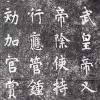 武皇帝又
帝除使持
行應管鍾
効加官賞